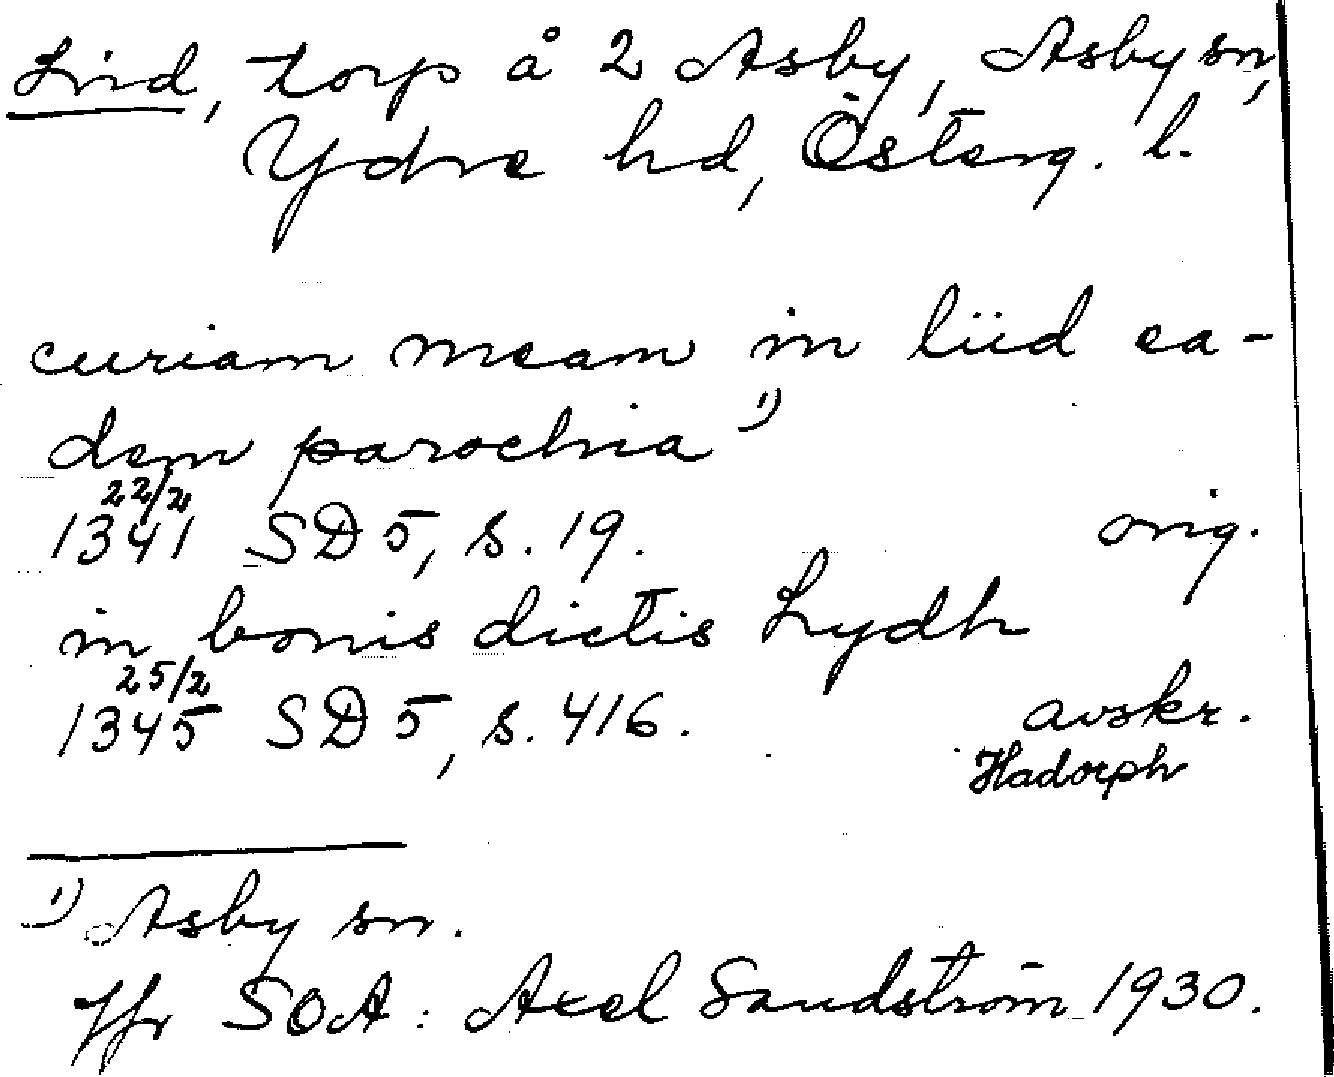 Lind, torp å 2 Asby, Asby sn,
Ydre hd, Österg. l.
curiam meam in liid ea-
dem parochia 1)
22/2
1341 SD 5, s. 19. orig.
in bonis dictis Lydh
25/2
1345 SD 5, s. 416. avskr.
Hadorph
1) Asby sn.
Jfr SOA: Axel Sandström 1930.